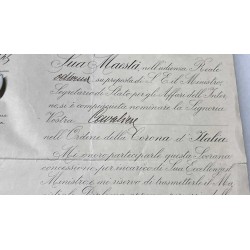 Sua Maestà nell'udienza Reale
odierna su proposta di S. E. il Ministro
Segretario di Stato per gli Affari dell'Inter
no si è compiaciuta nominare la Signoria
Vostra Cavaliere
nell'Ordine della Corona d'Italia.
Mi onoro parteciparle questa Sovrana
concessione, per incarico di Sua Eccellenza il
Ministro, e mi riservo di trasmetterle il Ma